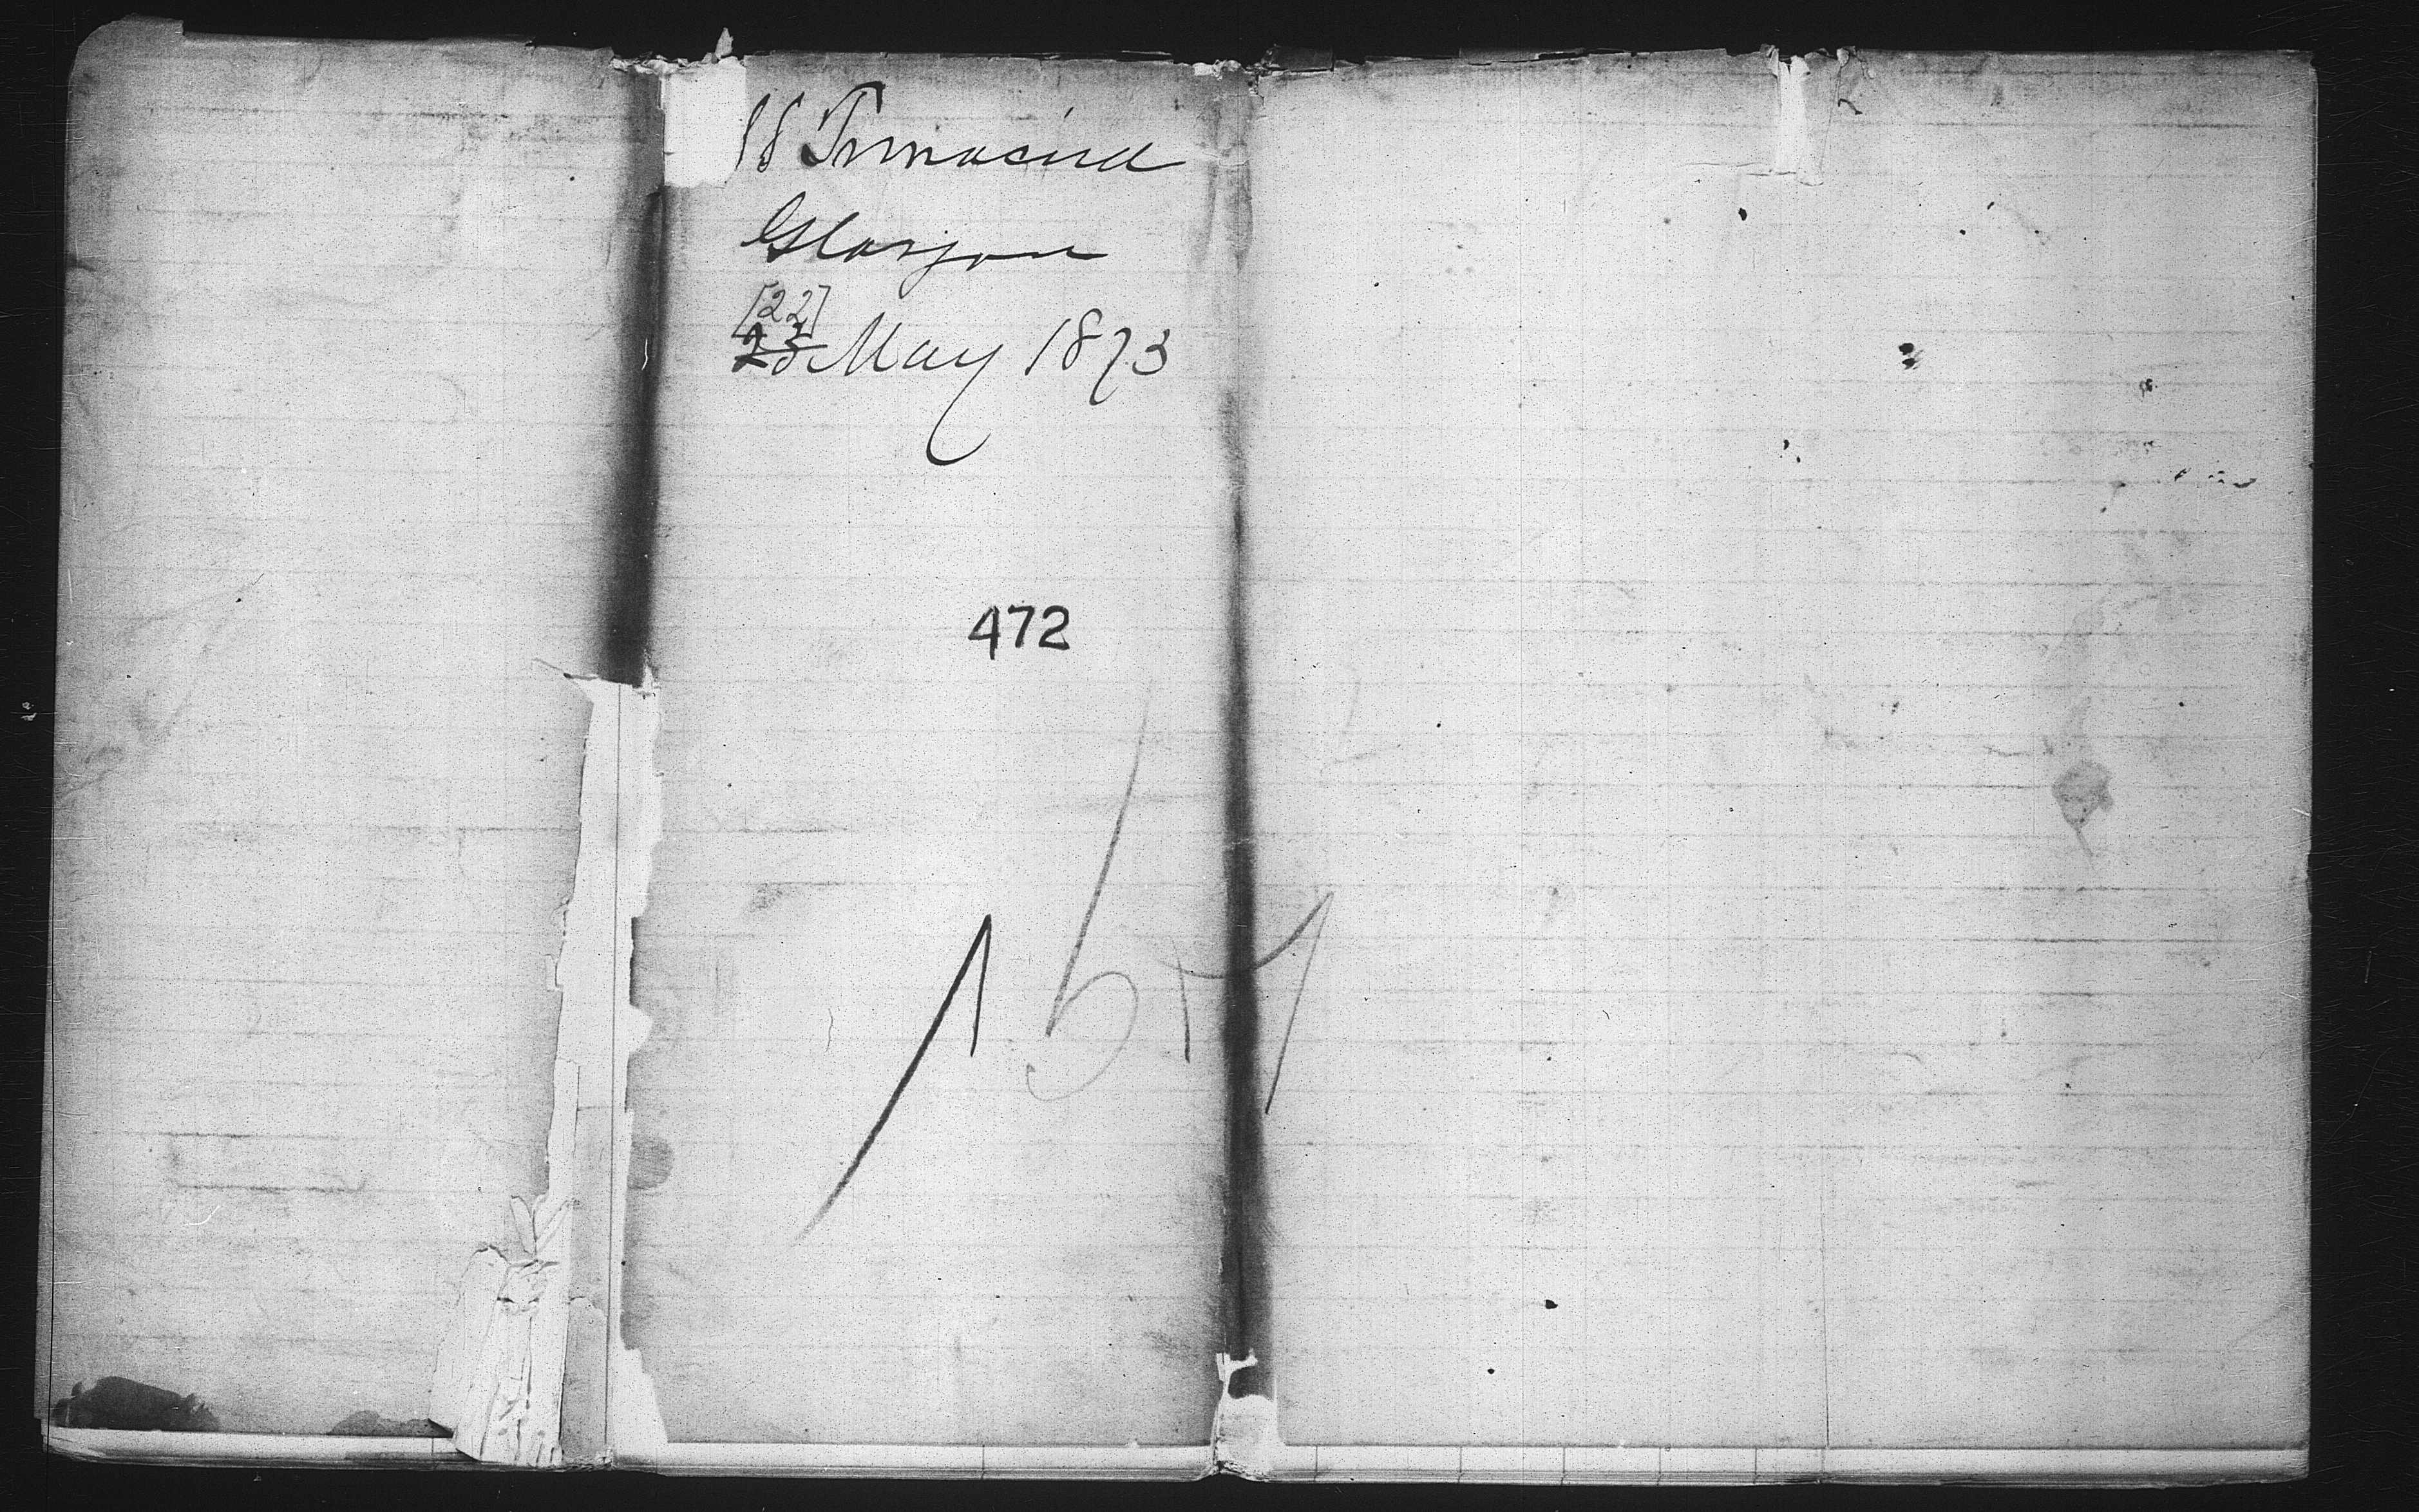 SS Trinacria
Glasgow
[22]
23 May 1873
472